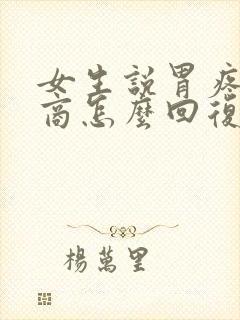 女生說胃疼
商怎麼回復
楊萬里